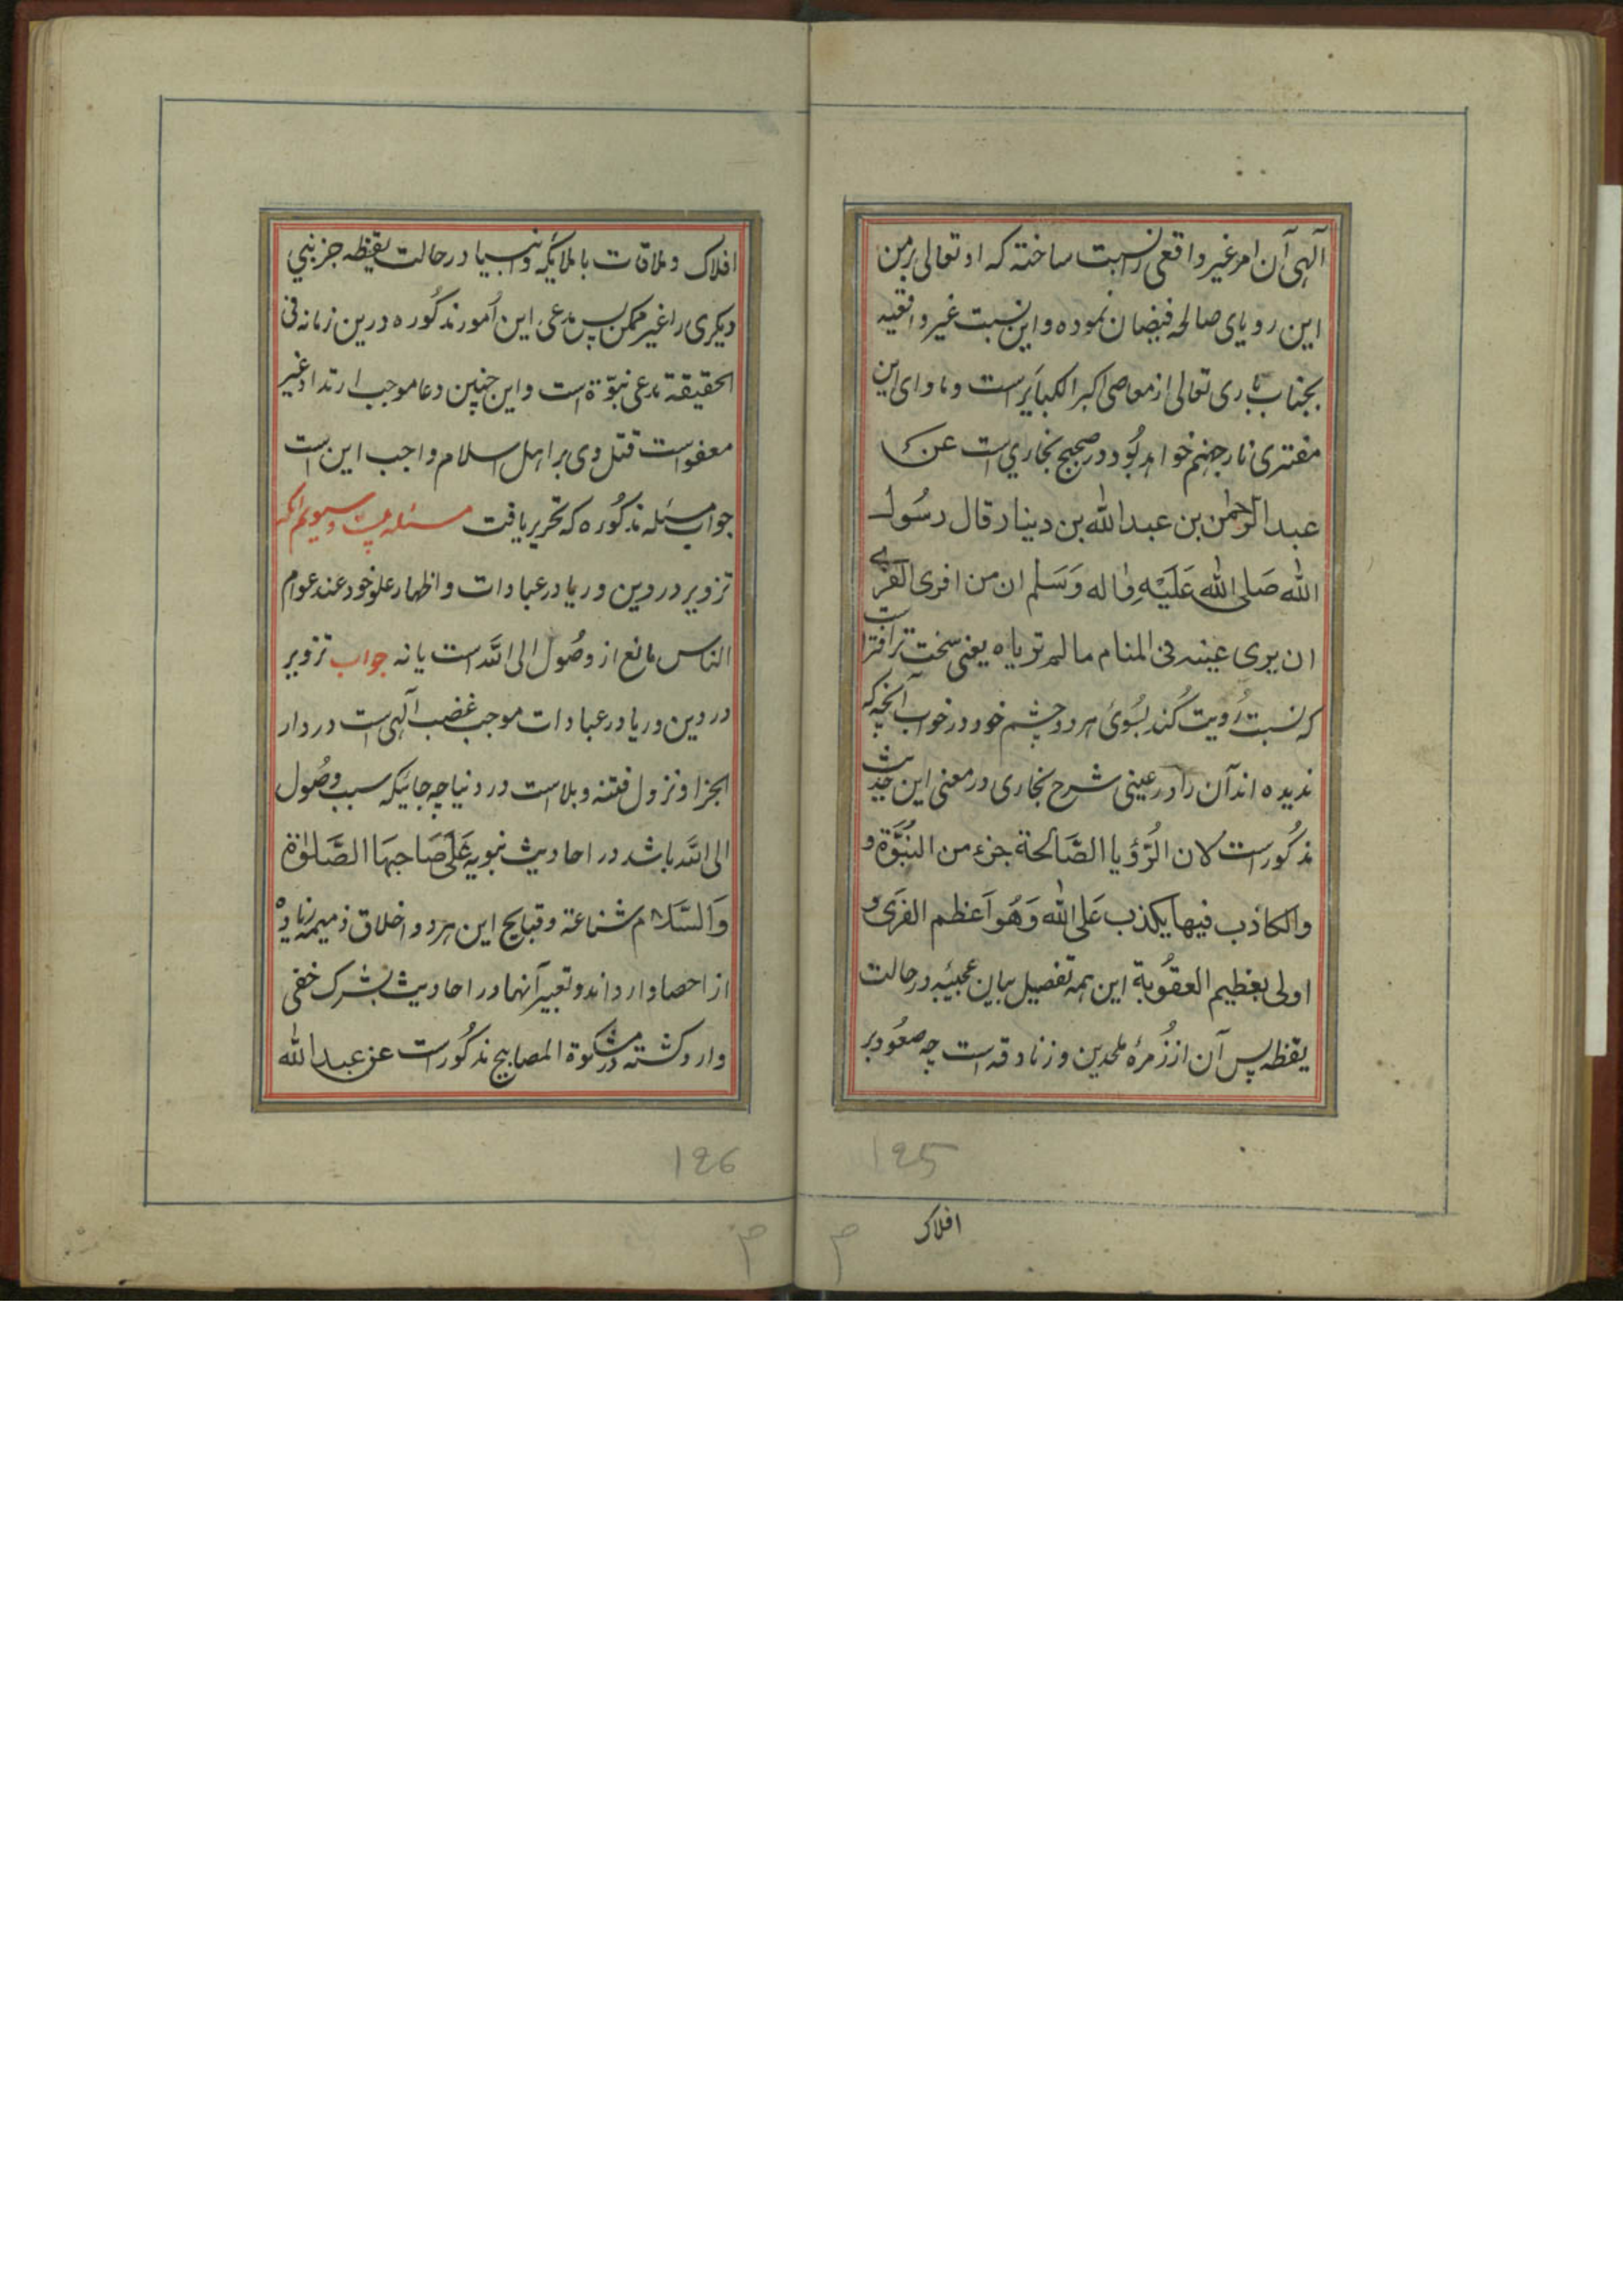 آلهی آن امر غیر واقعی را نسبت ساخته که او تعالی بر من
این رویای صالحه فیضان نموده و این نسبت غیر واقعیه
بجناب باری تعالی از معاصی اکبر الکبایٔر است و ماوای این
مفتری نار جهنم خواهد بُود در صحیح بخاري است عن
عبد الرحمٰن بن عبد الله بن دینار قال رسُول
الله صَلی الله عَلَیْهِ واله وَسَلم ان من افری الفری
ان یری عینیه فی المنام مالم تریاه یعنی سخت‌ترافترا است
که نسبت رُویت کُند بسُویٔ هر دو چشم خود در خواب آنچه که
ندیده اند آن را در عینی شرح بخاری در معنی این حدیث
مذکُور است لان الرُّؤیا الصَّالحة جزء من النُبُّوَة و
والکاذب فیها یکذب عَلی الله وَهُوَ اَعظم الفرَی و
اولی بعظیم العقُوبة این همه تفصیل ببیان عجیبٔه در حالت
یقظه پس آن از زُمرهٔ ملحدین و زنادقه است چه صعُود بر
افلاک
195
افلاک و ملاقات با ملایٔکه و انبیا در حالت یقظه جز نبي
دیکری را غیر ممکن پس مدعی این اُمور مذکُوره درین زمانه فی
الحقیقة مدعی نبوّة است و این چنین دعا موجب ارتداد غیر
معفو است قتل وی بر اهل اسلام واجب این است
جواب مسئله مذکُوره که تحریر یافت مسئله بیست و سیویم آنکه
تزویر در دین و ریا در عبادات و اظهار علو خود عند عوام
الناس مانع از وصُول الی الله است یا نه جواب تزویر
در دین و ریا در عبادات موجب غضب آلهی است در دار
الجزا و نزول فتنه و بلا است در دنیا چه جائیکه سبب وصُول
الی الله باشد در احادیث نبویه عَلَی صَاحبهَا الصَّلوٰة
وَالسَّلام شناعة و قبایح این هر دو اخلاق ذمیمه زیاده
از احصا وارد اند و تعبیر آنها در احادیث بشرک خفی
وارد کشته در مشکوة المصابیح مذکُور است عن عبد الله
196